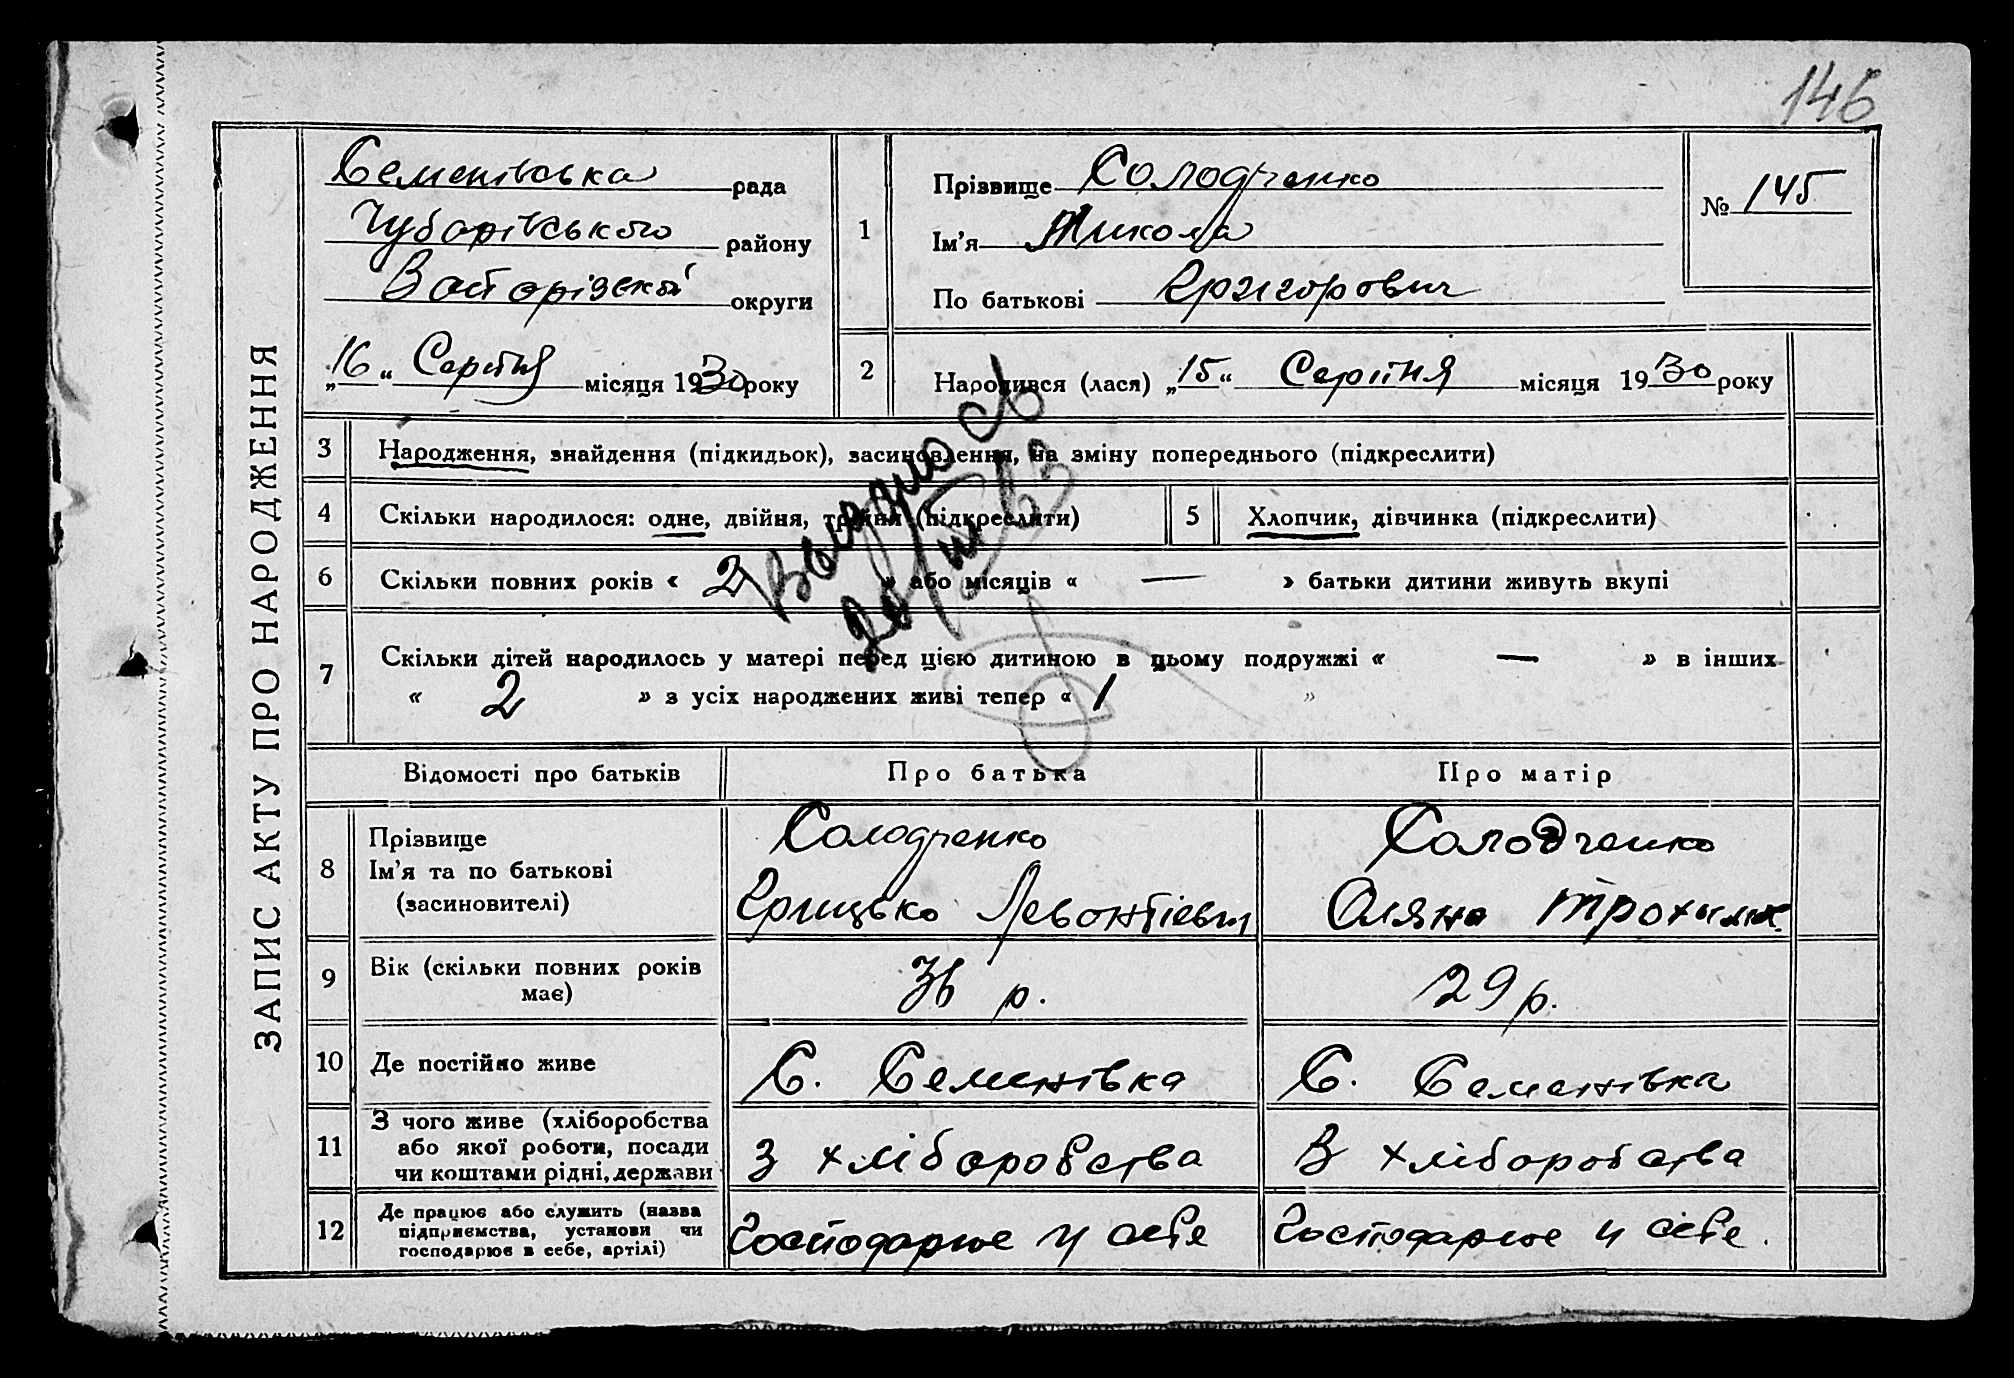 146
ЗАПИС АКТУ ПРО НАРОДЖЕННЯ
Семенівська рада
Чубарівського району
Запорізскої округи
„16“ Серпня місяця 1930 року
1
Прізвище Солодченко
Ім'я Микола
По батькові Григорович
№ 145
2 Народився (лася) „15“ Серпня місяця 1930 року
3 Народження, знайдення (підкидьок), засиновлення, на зміну попереднього (підкреслити)
4 Скільки народилося: одне, двійня, тройня (підкреслити) 5 Хлопчик, дівчинка (підкреслити)
6 Скільки повних років « 2 » або місяців « — » батьки дитини живуть вкупі
7 Скільки дітей народилось у матері перед цією дитиною в цьому подружжі « — » в інших
« 2 » з усіх народжених живі тепер « 1 »
Відомості про батьків Про батька Про матір
8 Прізвище
Ім'я та по батькові
(засиновителі)
Солодченко
Грицько Левонтієвич
Солодченко
Оляна
9 Вік (скільки повних років
має)
36 р. 29 р.
10 Де постійно живе С. Семенівка С. Семенівка
11 З чого живе (хліборобства
або якої роботи, посади
чи коштами рідні, держави
З хліборобства З хліборобства
12 Де працює або служить (назва
підприємства, установи чи
господарює в себе, артілі)
Господарює у себе Господарює у себе.